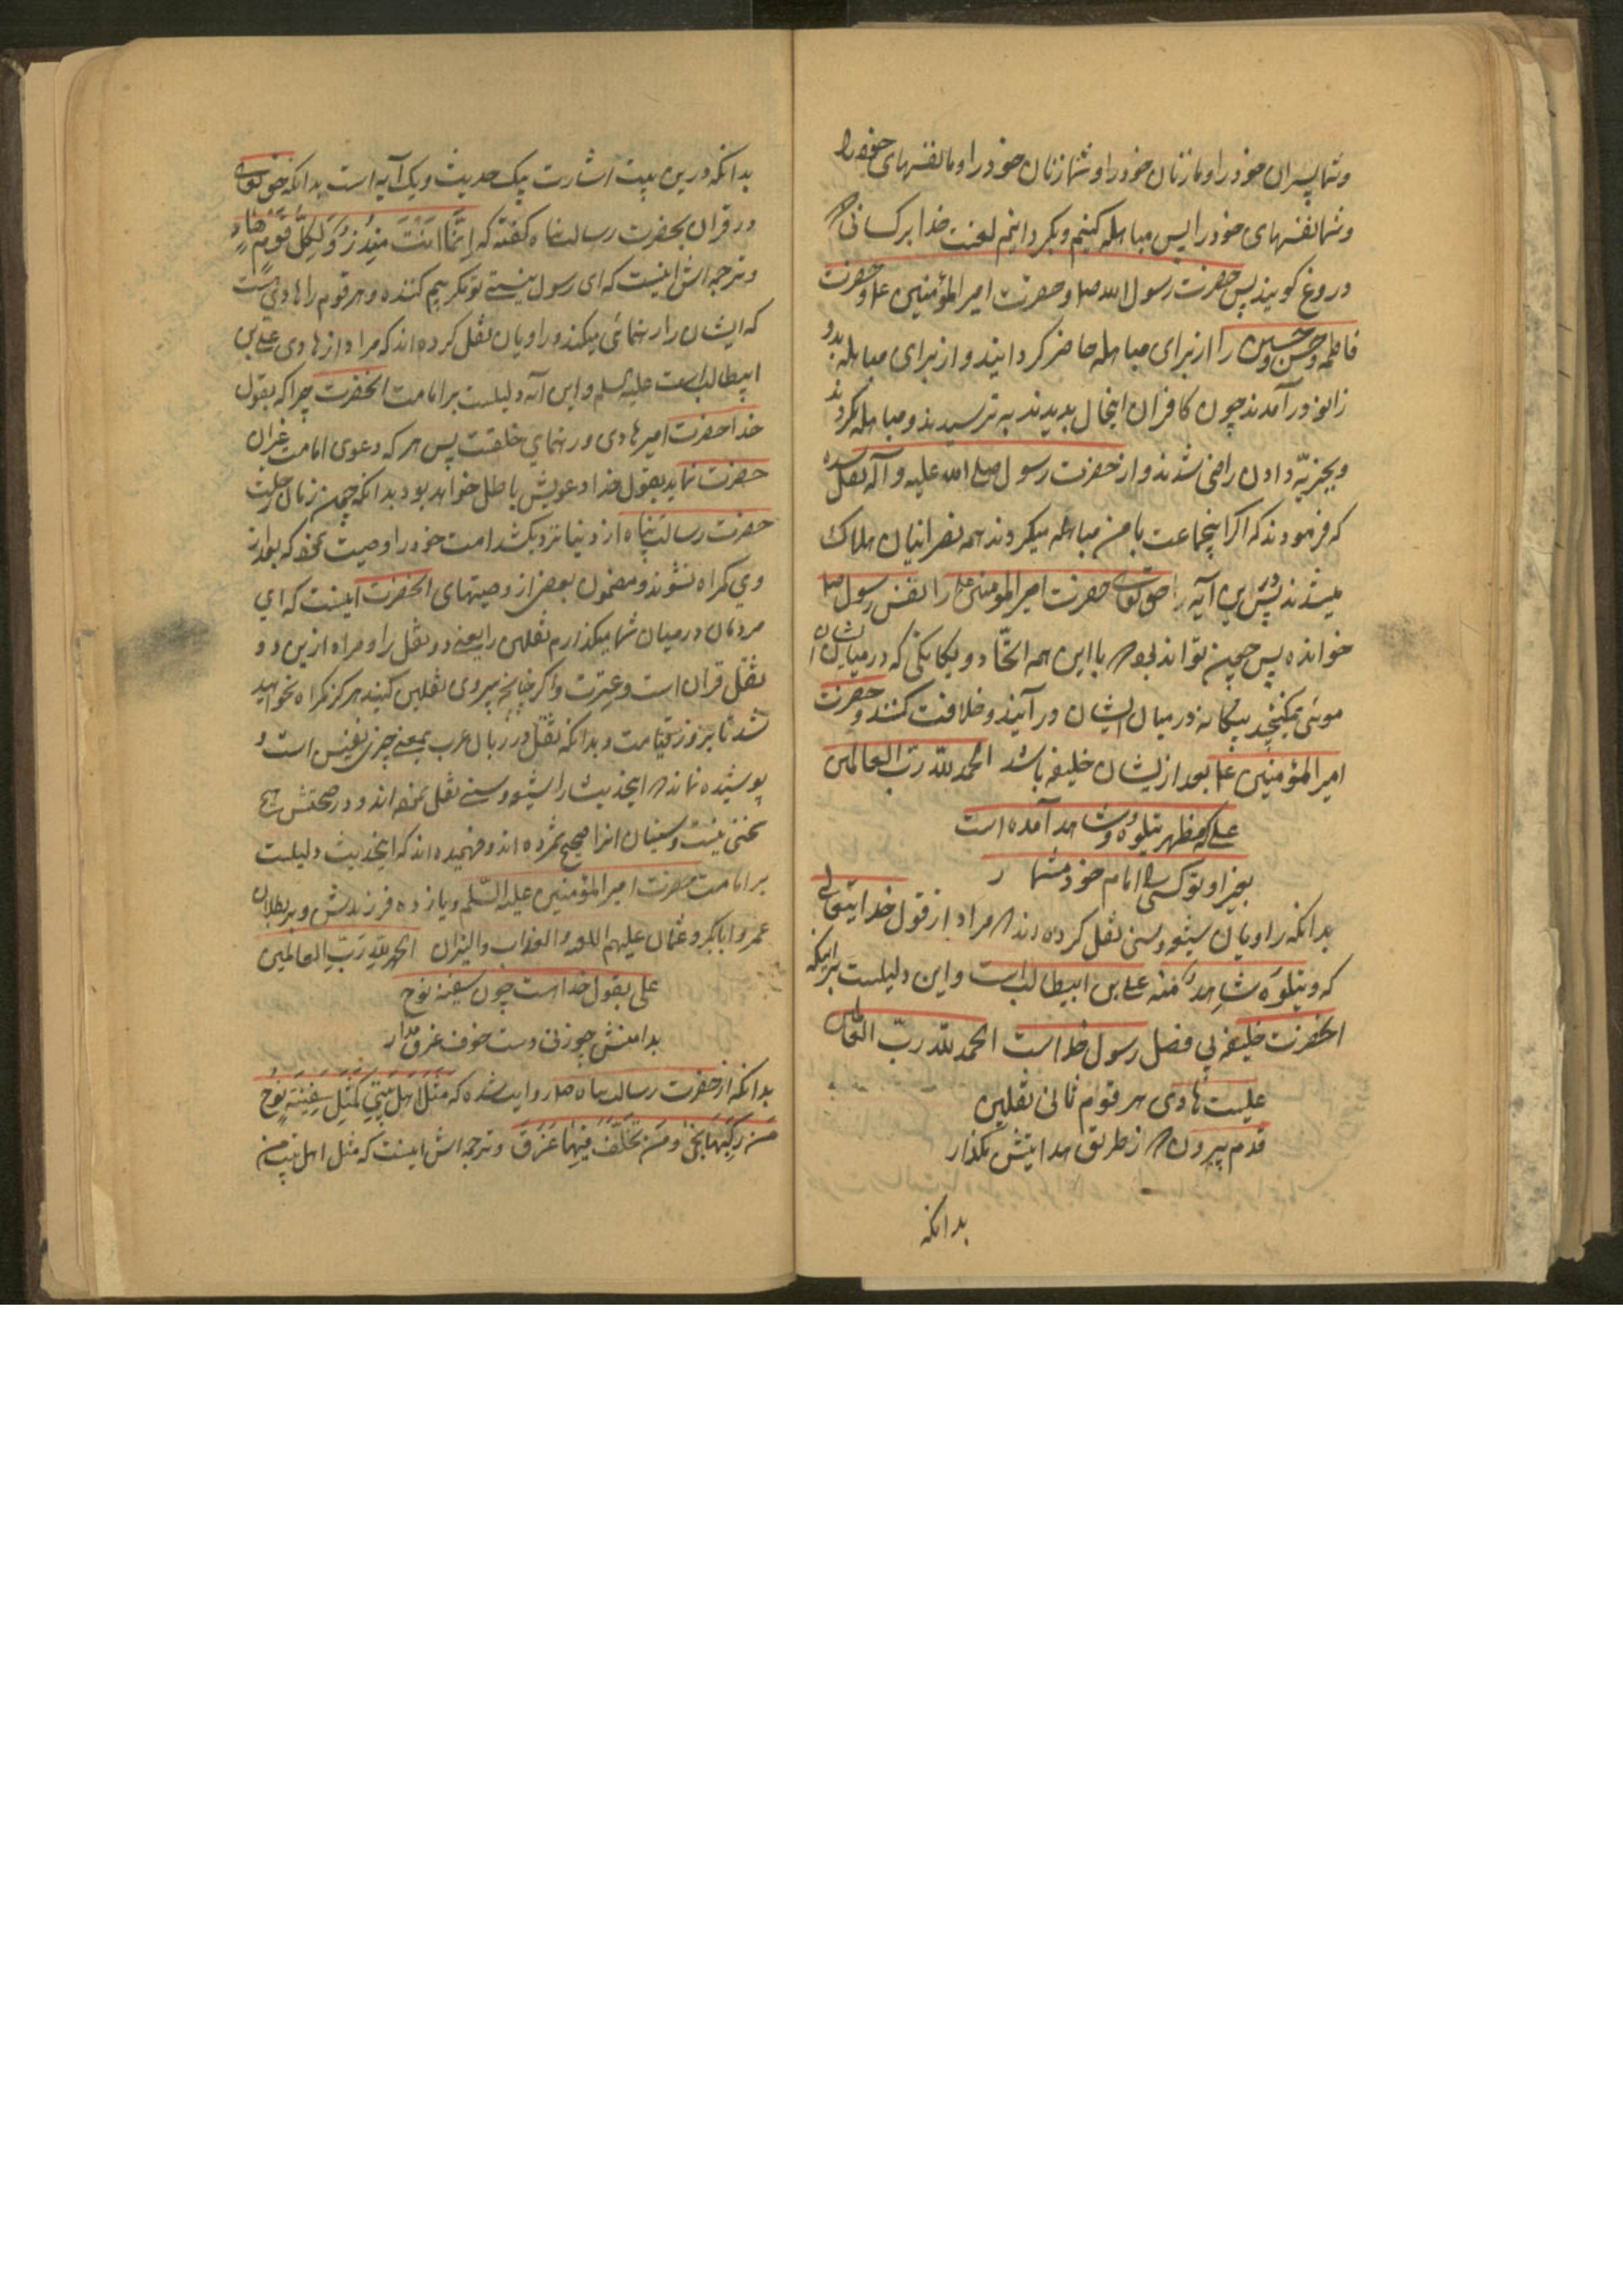 وشما پسران خود را و ما زنان خود را و شما زنان خود را و ما نفسهای خود را
وشما نفسهای خود را پس مباهله کنیم و بکردانیم لعنت خدا بر کسانی که
دروغ کویند پس حضرت رسول الله صلع و حضرت امیر المؤمنین ع و حضرت
فاطمه و حسن و حسین را از برای مباهله حاضر کردانیدند و از برای مباهله بدو
زانو در آمدند چون کافران اینحال بدیدند به ترسیدند و مباهله نکردند
و بجزیّه دادن راضی شدند و از حضرت رسول صلی الله علیه و آله نقل شده
که فرمودند که اکر اینجماعت با من مباهله میکردند همه نصرانیان هلاک
میشدند پس در این آیه حق تعالی حضرت امیر المومنین ع را نفس رسول صلع
خوانده پس چون تواند بود که با این همه اتحاد و یکانکی که در میان ایشان
موئی نمیکنجد بیکانه در میان ایشان در آیند و خلافت کنند و حضرت
امیر المؤمنین ع بعد از ایشان خلیفه باشد الحمد لله رب العالمین
علی که مظهر یتلوه و شاهد آمده است
بجز او تو کسی را امام خود مشمار
بدانکه راویان شیعه و سنی نقل کرده اند که مراد از قول خدایتعالی
که وَیَتلُوهُ شاهِدٌ مِنْه علی بن ابیطالب است و این دلیلست بر اینکه
انحضرت خلیفه بی فصل رسول خداست الحمد لله ربّ العالمین
علیست هادی هر قوم ثانی ثقلین
قدم برون که از طریق هدایتش نکذار
بدانکه
بدانکه درین بیت اشارت بیک حدیث و یک آیه است بدانکه حق تعالی
در قران بحضرت رسالت پناه کفته که اِنَّما اَنْتَ مُنذِرٌ وَلِکُلِّ قَوْمٍ هادٍ
و ترجمه اش اینست که ای رسول نیستی تو مکر بیم کننده و هر قوم را هادی هست
که ایشان را رهنمائی میکند و راویان نقل کرده اند که مراد از هادی علی بن
ابیطالب است علیه السلم و این آیه دلیلست بر امامت انحضرت چرا که بقول
خدا حضرت امیر هادی و رهنمای خلقست پس هر که دعوی امامت غیر آن
حضرت نماید بقول خدا دعویش باطل خواهد بود بدانکه چون زمان رحلت
حضرت رسالت پناه از دنیا نزدیک شد امت خود را وصیت نمود که بعد از
وی کمراه نشوند و مضمون بعضی از وصیتهای انحضرت اینست که ای
مردمان در میان شما میکذارم ثقلین را یعنی دو ثقل را و مراد از این دو
ثقل قران است و عترت و اکر چنانچه پیروی ثقلین کنید هرکز کمراه نخواهید
شد تا بروز قیامت و بدانکه ثقل در زبان عرب بمعنی چیز نفیس است و
پوشیده نماند که اینحدیث را شیعه و سنی نقل نموده اند و در صحتش
سخنی نیست و سنیان انرا صحیح شمرده اند و فهمیده اند که اینحدیث دلیلست
بر امامت حضرت امیر المؤمنین علیه السلم و یازده فرزندش و بر بطلان
عمر و ابابکر و عثمان علیهم اللعنه و العذاب و النیران الحمد لله رَبِّ العالمین
علی بقول خداست چون سفینه نوح
بدامنش چو زنی دست خوف غرق مدار
بدانکه از حضرت رسالت پناه صلع روایت شده که مَثَلُ اَهلِ بَیتی کَمَثَلِ سَفِینَةِ نُوحٍ
مَنْ رَکِبَها نَجیٰ وَ مَنْ تَخَلَّفَ فیها غَرَقَ و ترجمه اش اینست که مثل اهل بیت من